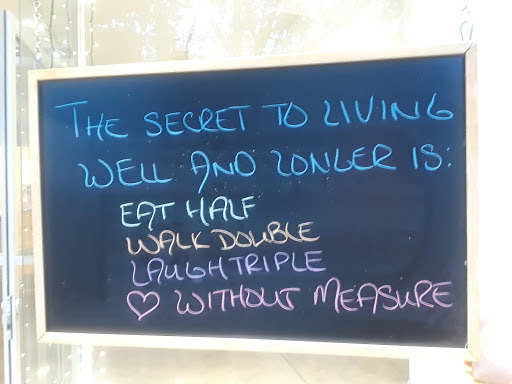 THE SECRET TO LIVING
WELL AND LONGER IS:
EAT HALF
WALK DOUBLE
LAUGH TRIPLE
♡ WITHOUT MEASURE